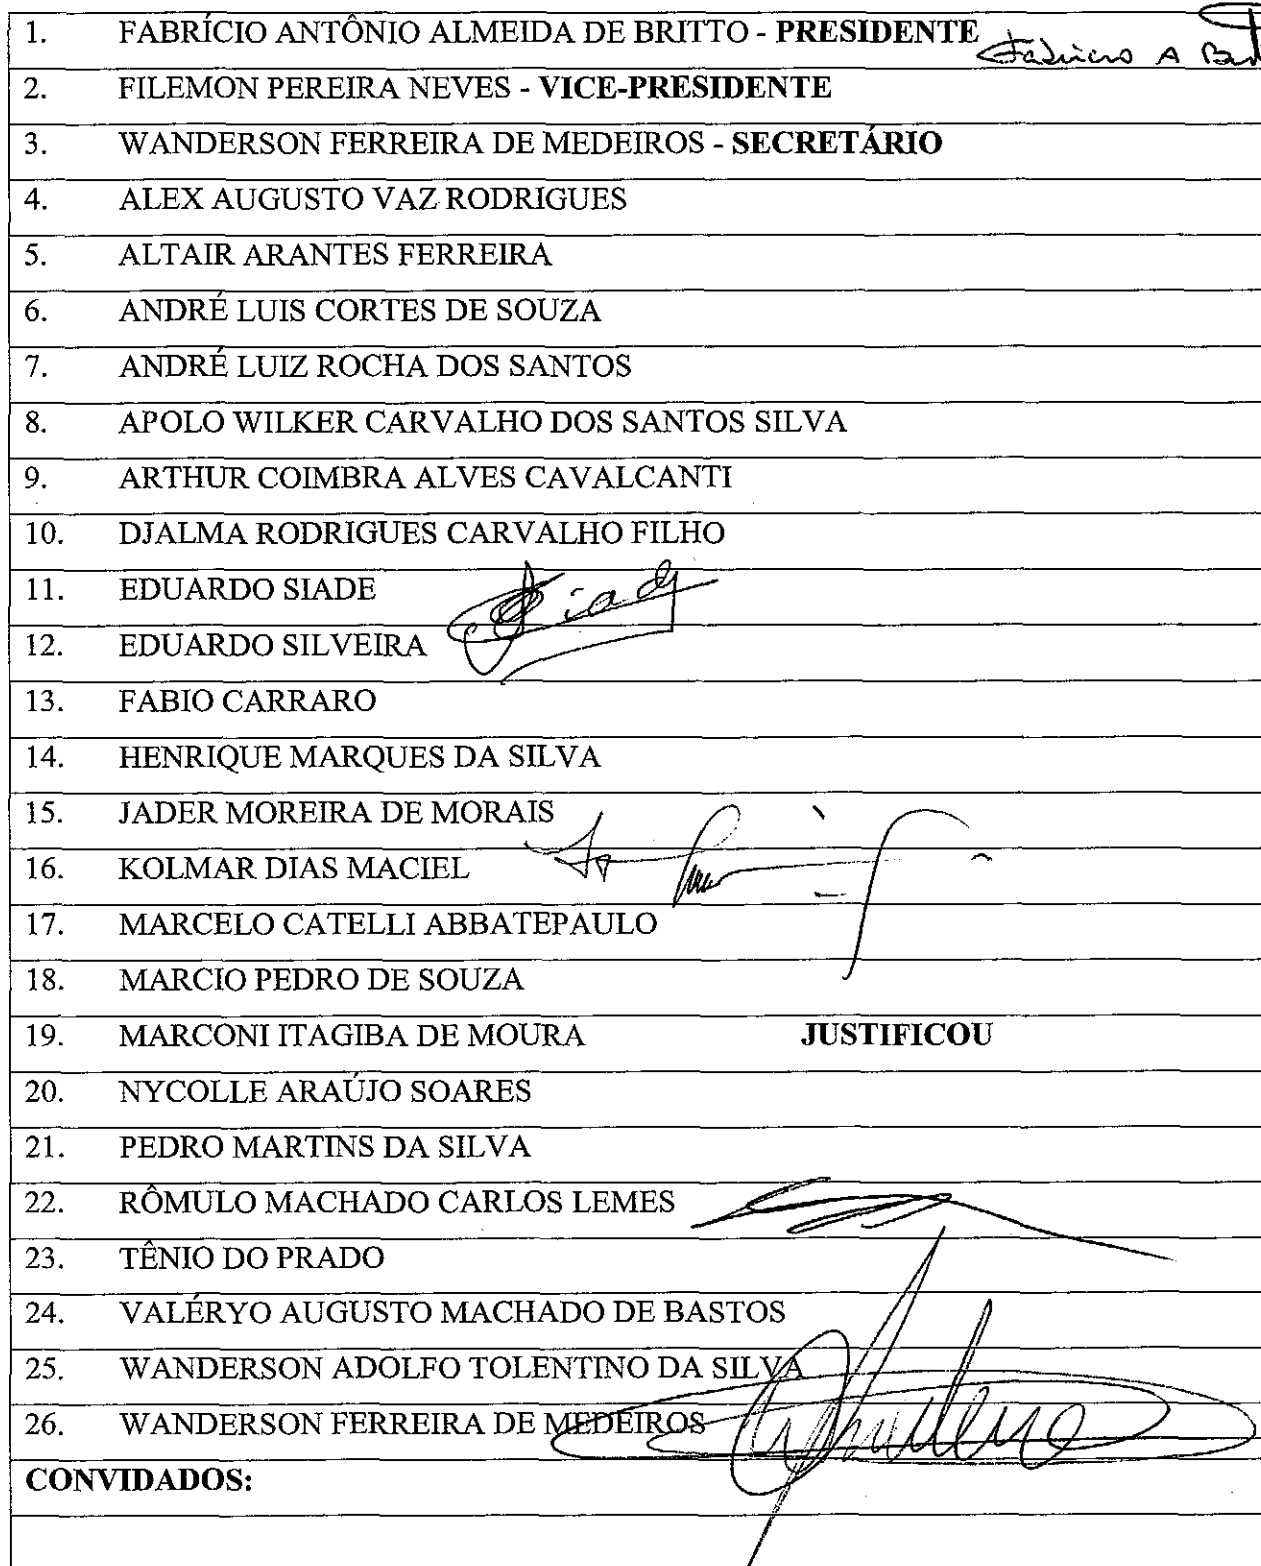 1. FABRÍCIO ANTÔNIO ALMEIDA DE BRITTO - PRESIDENTE Fabricio A Brit
2. FILEMON PEREIRA NEVES - VICE-PRESIDENTE
3. WANDERSON FERREIRA DE MEDEIROS - SECRETÁRIO
4. ALEX AUGUSTO VAZ RODRIGUES
5. ALTAIR ARANTES FERREIRA
6. ANDRÉ LUIS CORTES DE SOUZA
7. ANDRÉ LUIZ ROCHA DOS SANTOS
8. APOLO WILKER CARVALHO DOS SANTOS SILVA
9. ARTHUR COIMBRA ALVES CAVALCANTI
10. DJALMA RODRIGUES CARVALHO FILHO
11. EDUARDO SIADE
12. EDUARDO SILVEIRA
13. FABIO CARRARO
14. HENRIQUE MARQUES DA SILVA
15. JADER MOREIRA DE MORAIS
16. KOLMAR DIAS MACIEL
17. MARCELO CATELLI ABBATEPAULO
18. MARCIO PEDRO DE SOUZA
19. MARCONI ITAGIBA DE MOURA JUSTIFICOU
20. NYCOLLE ARAÚJO SOARES
21. PEDRO MARTINS DA SILVA
22. RÔMULO MACHADO CARLOS LEMES
23. TÊNIO DO PRADO
24. VALÉRYO AUGUSTO MACHADO DE BASTOS
25. WANDERSON ADOLFO TOLENTINO DA SILVA
26. WANDERSON FERREIRA DE MEDEIROS
CONVIDADOS: